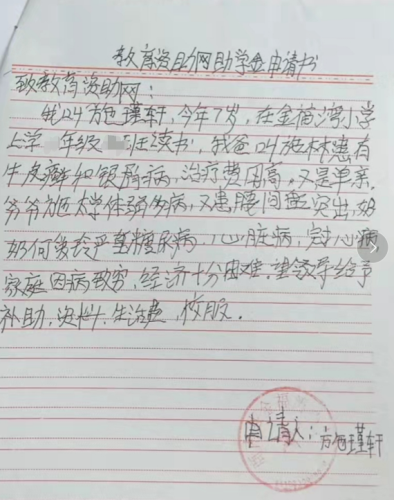 教育资助网助学金申请书
致教育资助网：
我叫施瑾轩，今年7岁，在金福湾小学
上学 年级 班读书，我爸叫施林患有
牛皮癣和银屑病，治疗费用高，又是单亲，
爷爷施大学体弱多病，又患腰间盘突出，奶
奶何 严重糖尿病，心脏病，冠心病
家庭因病致穷，经济十分困难，望领导给予
补助，资料，生活费，校服。
申请人：施瑾轩